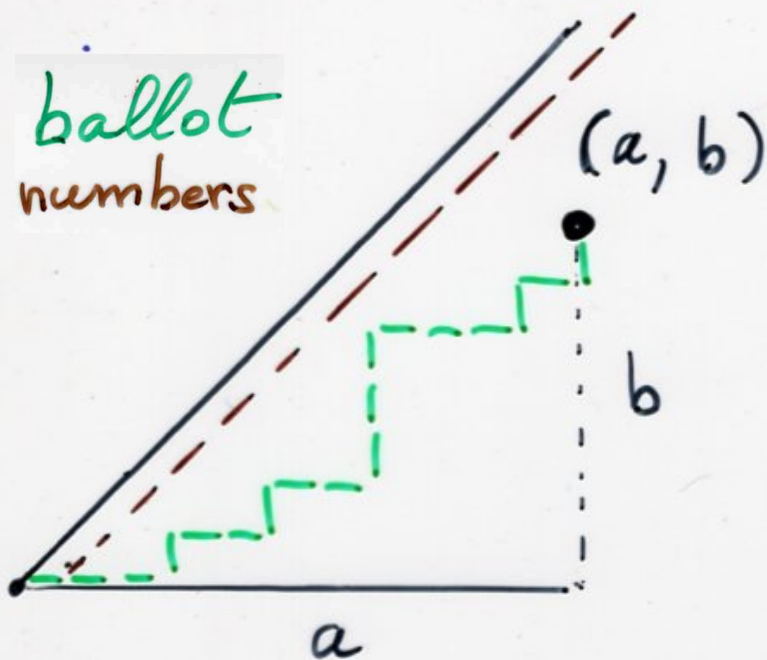 ballot
numbers
(a, b)
b
a